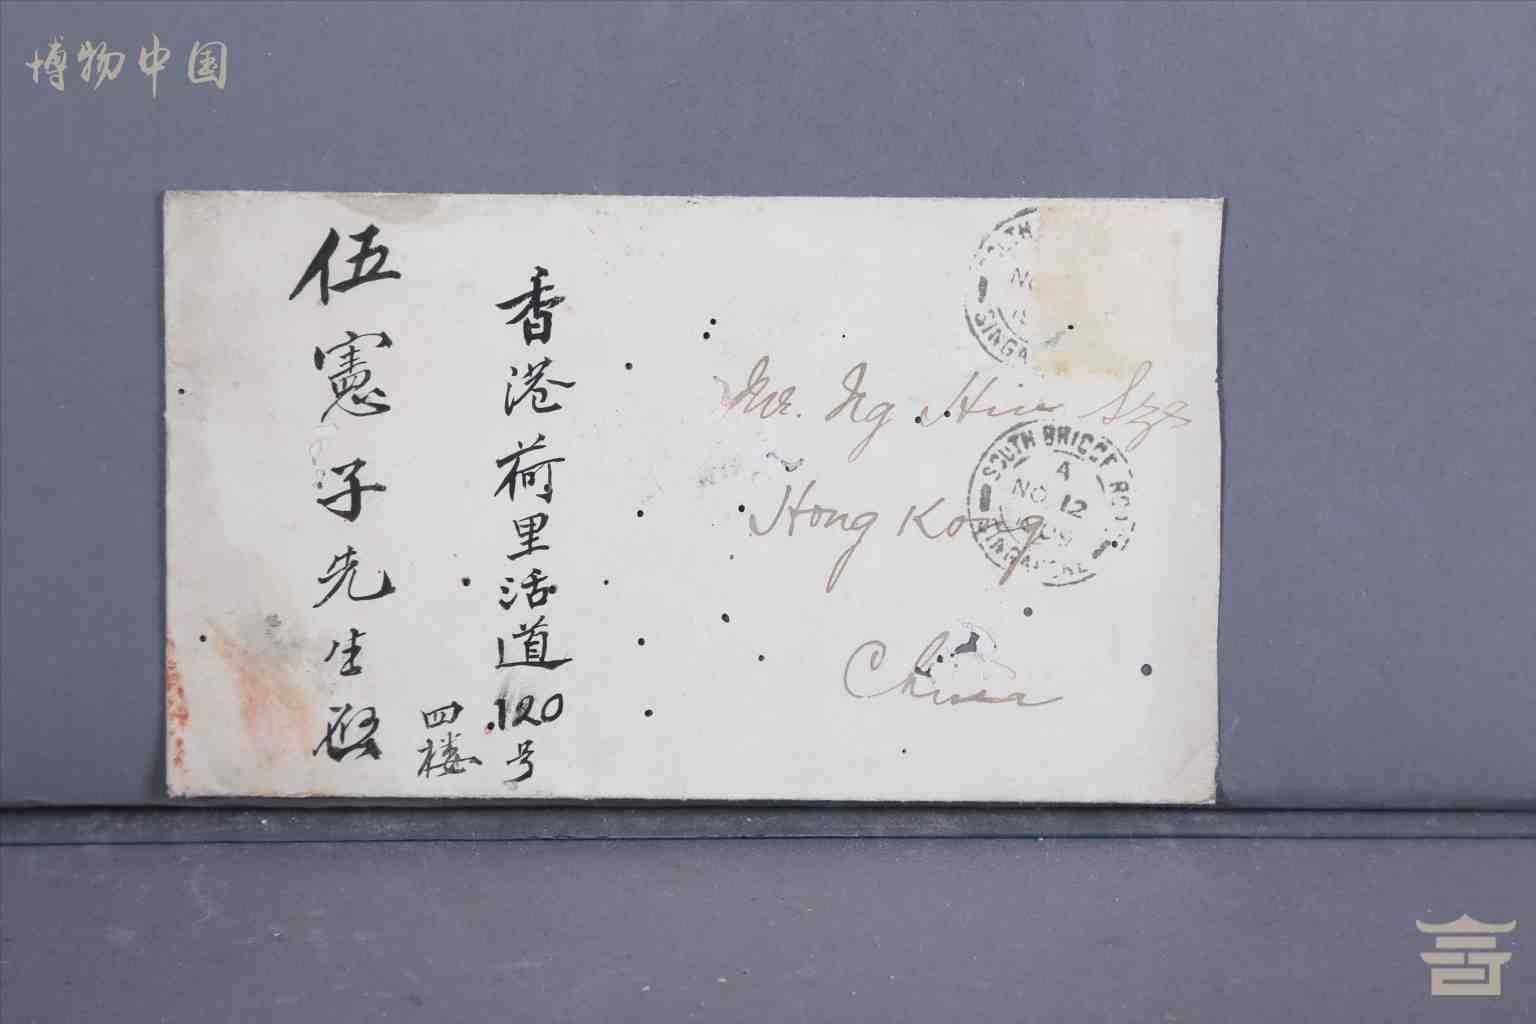 博物中国
香港荷里活道120号
四楼
伍憲子先生啟
Mr. Ng Hin Sze
Hong Kong
China
SOUTH
NO
SINGA
SOUTH BRIDGE ROAD
A
NO 12
SINGAPORE